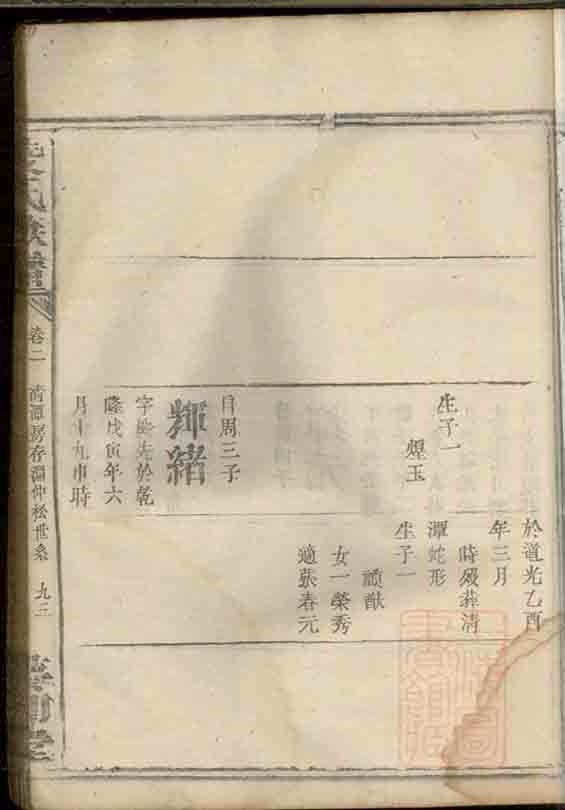 於道光乙酉
年三月
時歿葬清
潭蛇形
生子一
頑猷
女一榮秀
適張春元
生子一
煌玉
目周三子
輝緒
字
先於乾
隆戊寅年六
月十九申時
氏族譜
卷二
清潭房存淵仲松世系
九三
堂